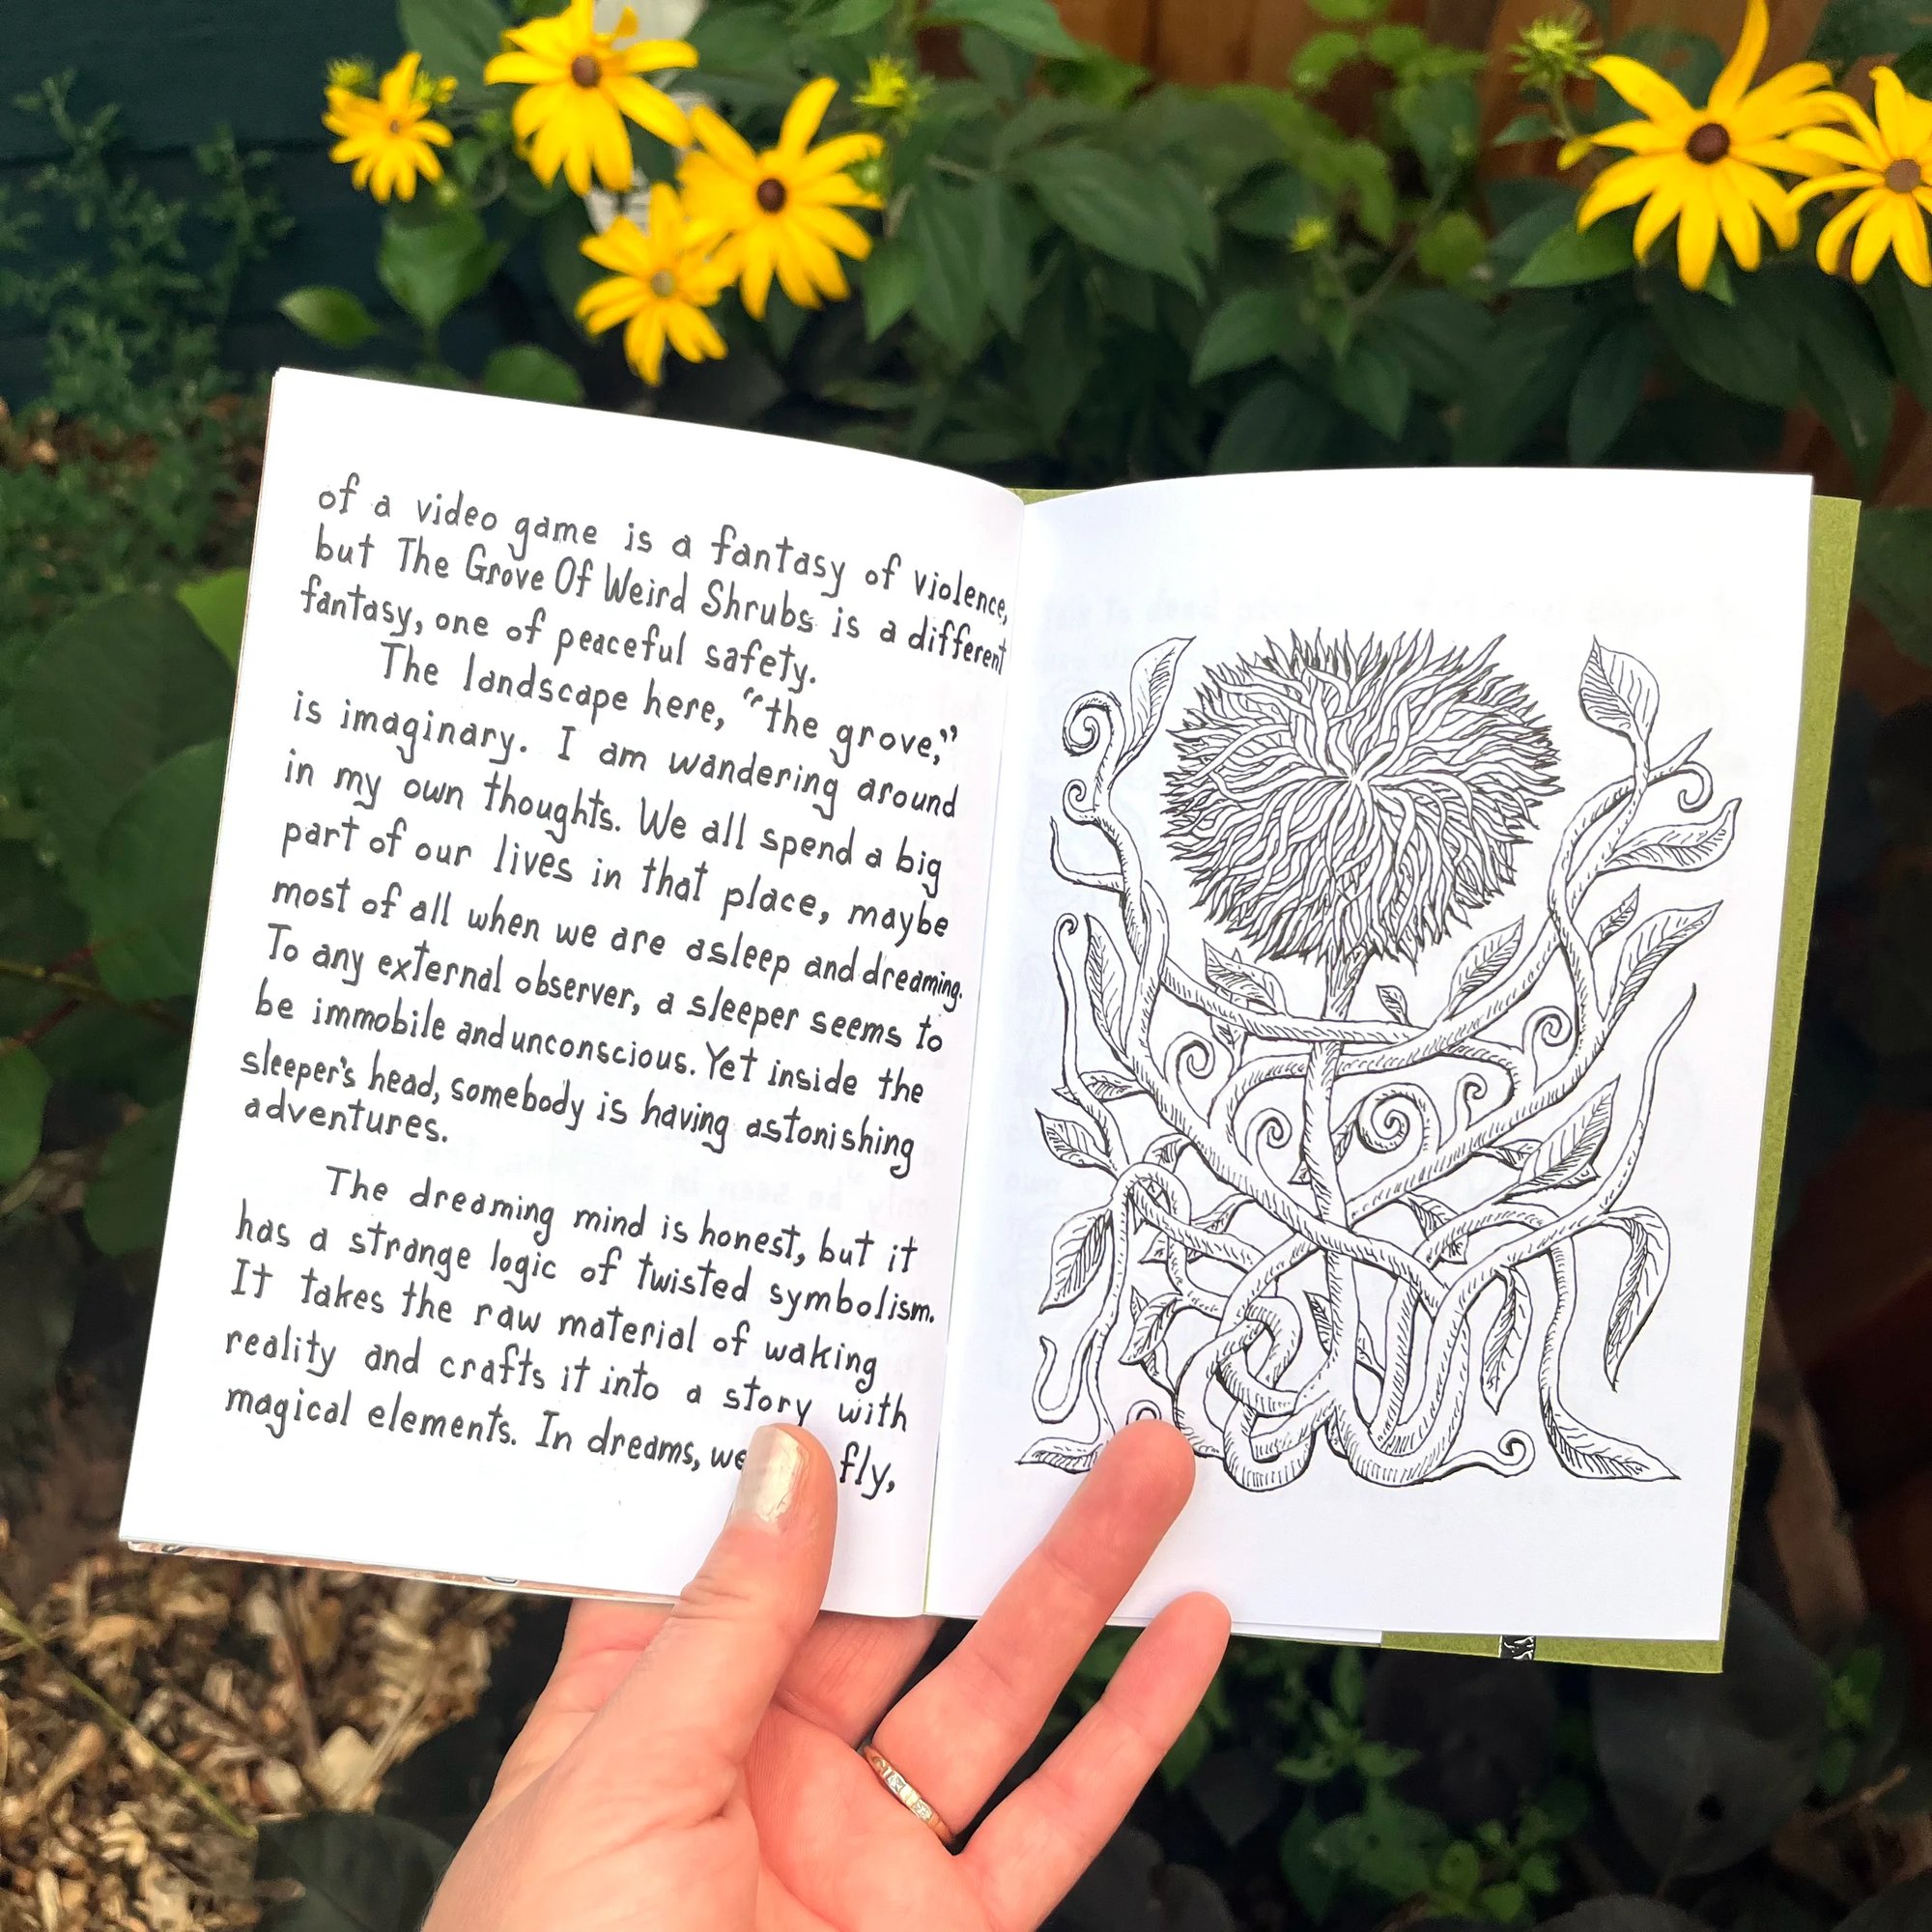 of a video game is a fantasy of violence,
but The Grove Of Weird Shrubs is a different
fantasy, one of peaceful safety.
The landscape here, “the grove,”
is imaginary. I am wandering around
in my own thoughts. We all spend a big
part of our lives in that place, maybe
most of all when we are asleep and dreaming.
To any external observer, a sleeper seems to
be immobile and unconscious. Yet inside the
sleeper's head, somebody is having astonishing
adventures.
The dreaming mind is honest, but it
has a strange logic of twisted symbolism.
It takes the raw material of waking
reality and crafts it into a story with
magical elements. In dreams, we fly,